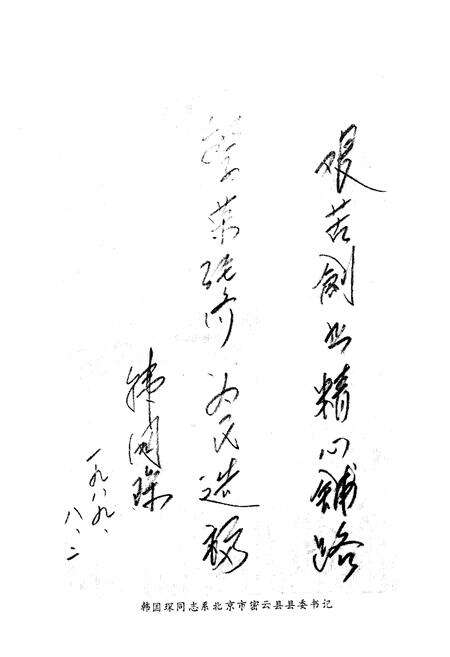 艰苦创业精心铺路
繁荣经济为民造福
韩国琛
一九八九、
八、二
韩国琛同志系北京市密云县县委书记